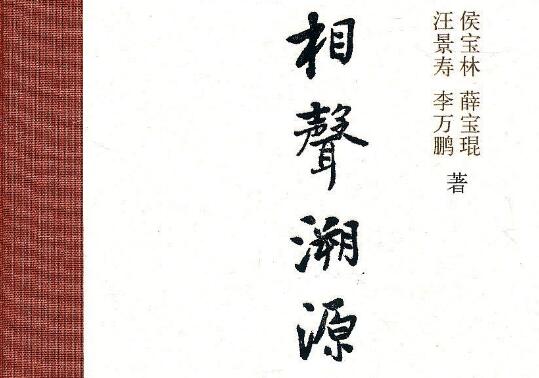 侯宝林 薛宝琨
汪景寿 李万鹏
著
相聲溯源